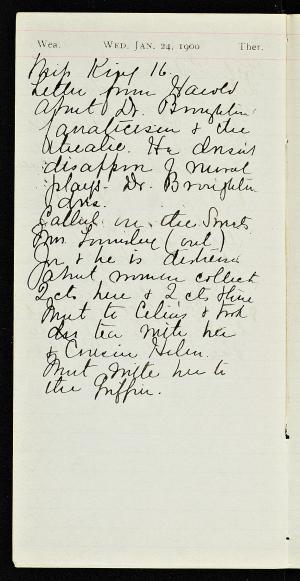 Wea. WED. JAN. 24, 1900 Ther.
Miss King 16.
Letter from Harold
about Dr. Broughton
fanaticism & the
theatre. He doesn't
disapprov of moral
plays. Dr. Broughton
does.
Called on the
Mrs. (out)
Joe & he is
about women collect
2 cts here & 2 cts there
Went to Celia's & took
tea with her
& Cousin Helen.
Went with her to
the Griffin.